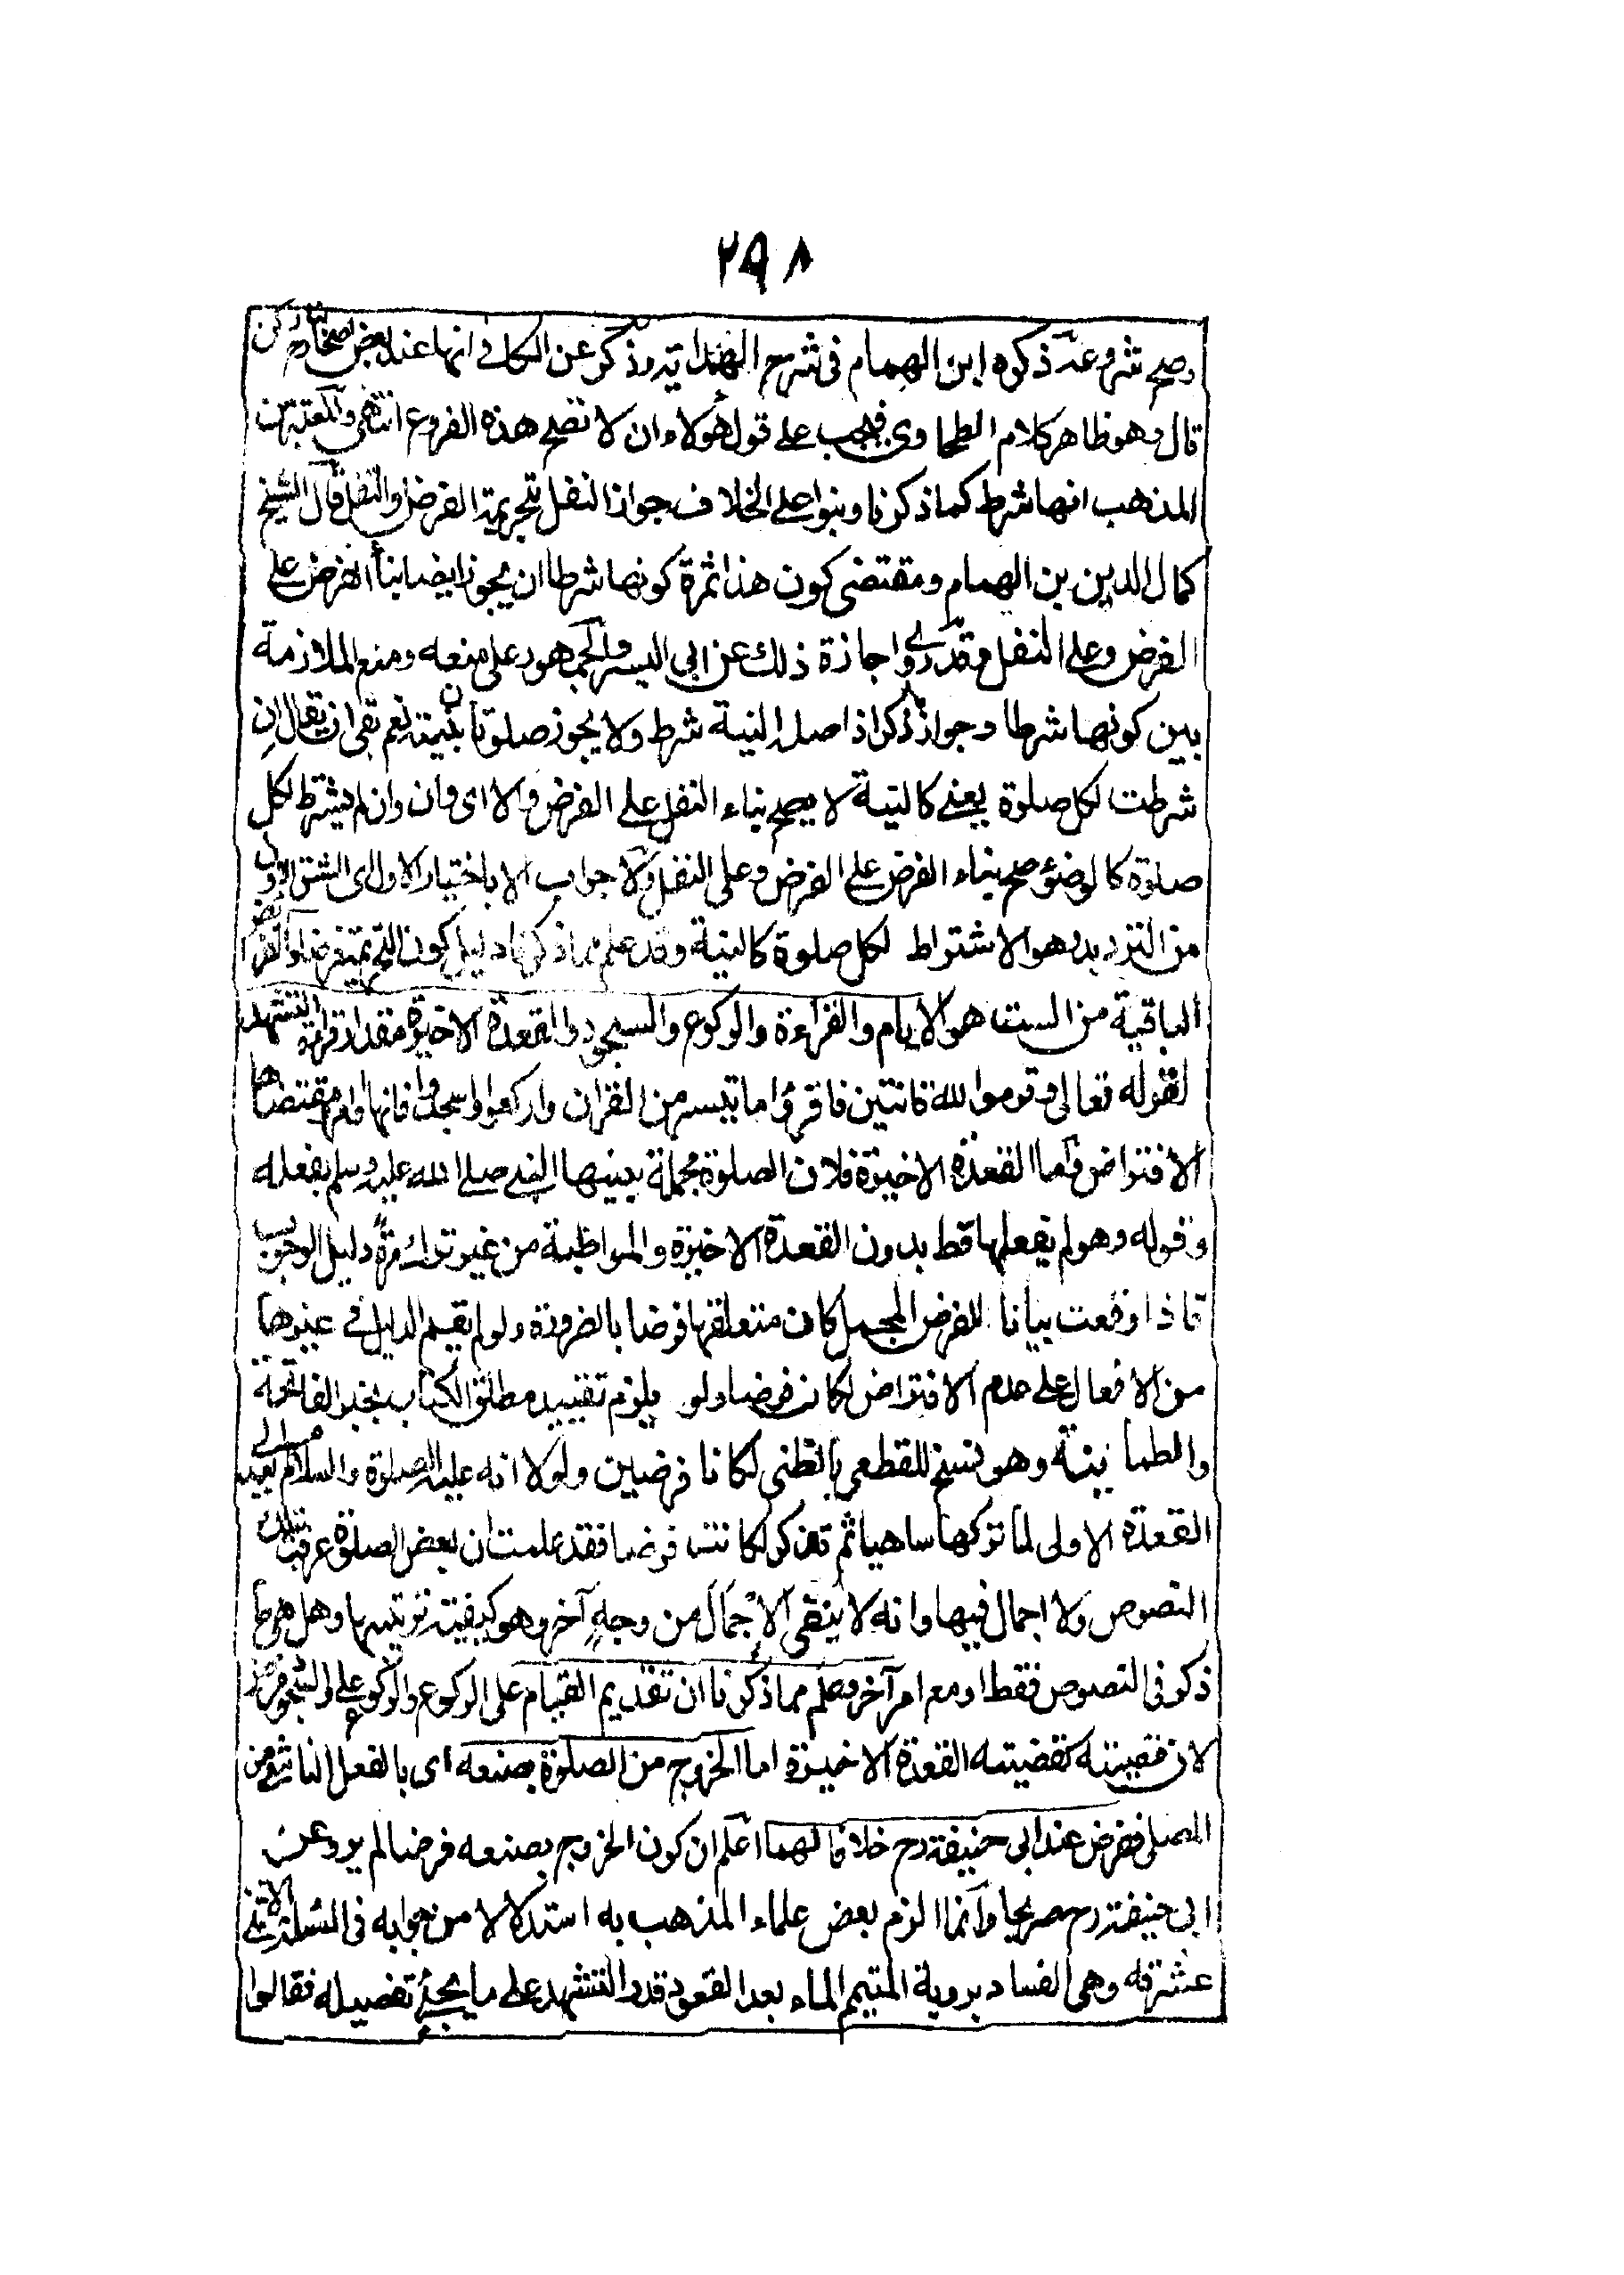 ٢٩٨
وصح شروعه ذكره ابن الهمام فى شرح الهداية وذكر عن الكافى انها عند بعض اصحابنا ركن
قال وهو ظاهر كلام الطحاوى فيجب على قول هؤلاء ان لا تصح هذه الفروع انتهى والمعتبر من
المذهب انها شرط كما ذكرنا وبنوا على الخلاف جواز النفل بتحريمة الفرض والنفل قال الشيخ
كمال الدين بن الهمام ومقتضى كون هذا ثمرة كونها شرطا ان يجوز ايضا بناء الفرض على
الفرض وعلى النفل وقد روى اجازة ذلك عن ابى اليسر والجمهور على منعه ومنع الملازمة
بين كونها شرطا وجواز ما ذكر اذ اصل النية شرط ولا يجوز صلوتان بنية نعم بقى ان يقال ان
شرطت لكل صلوة يعنى كالنية لا يصح بناء النفل على الفرض والا اى وان وان لم يشترط لكل
صلوة كالوضوء صح بناء الفرض على الفرض وعلى النفل ولا جواب الا باختيار الاول اى الشق الاول
من الترديد وهو الاشتراط لكل صلوة كالنية وقد علم مما ذكرنا دليل كون التحريمة فرضا والفرائض
الباقية من الست هو القيام والقراءة والركوع والسجود والقعدة الاخيرة مقدار قراءة التشهد
لقوله تعالى وقوموا لله قانتين فاقرؤا ما تيسر من القران واركعوا واسجدوا فانها اوامر مقتضاها
الافتراض واما القعدة الاخيرة فلان الصلوة مجملة بينها النبى صلى الله عليه وسلم بفعله
وقوله وهو لم يفعلها قط بدون القعدة الاخيرة والمواظبة من غير ترك مرة دليل الوجوب
فاذا وقعت بيانا للفرض المجمل كان متعلقها فرضا بالضرورة ولو لم يقم الدليل فى غيرها
من الافعال على عدم الافتراض لكان فرضا ولو يلزم تقييد مطلق الكتاب بخبر الفاتحة
والطمانينة وهو نسخ للقطعى بالظنى لكانا فرضين ولولا انه عليه الصلوة والسلام لم يعد الى
القعدة الاولى لما تركها ساهيا ثم تذكر لكانت فرضا فقد علمت ان بعض الصلوة عرفت بتلك
النصوص ولا اجمال فيها وانه لا ينفى الاجمال من وجه آخر وهو كيفية ترتيبها وهل هى ما
ذكر فى النصوص فقط او مع امر آخر وعلم مما ذكرنا ان تقديم القيام على الركوع والركوع على السجود فرض
لان قضيته كقضيته القعدة الاخيرة اما الخروج من الصلوة بصنعه اى بالفعل الناشى من
المصلى ففرض عند ابى حنيفة رح خلافا لهما اعلم ان كون الخروج بصنعه فرضا لم يرد عن
ابى حنيفة رح صريحا وانما الزم بعض علماء المذهب به استدلالا من جوابه فى المسئلة الاثنى
عشرية وهى الفساد بروية المتيمم الماء بعد القعود قدر التشهد على ما يجئ تفصيله فقالوا